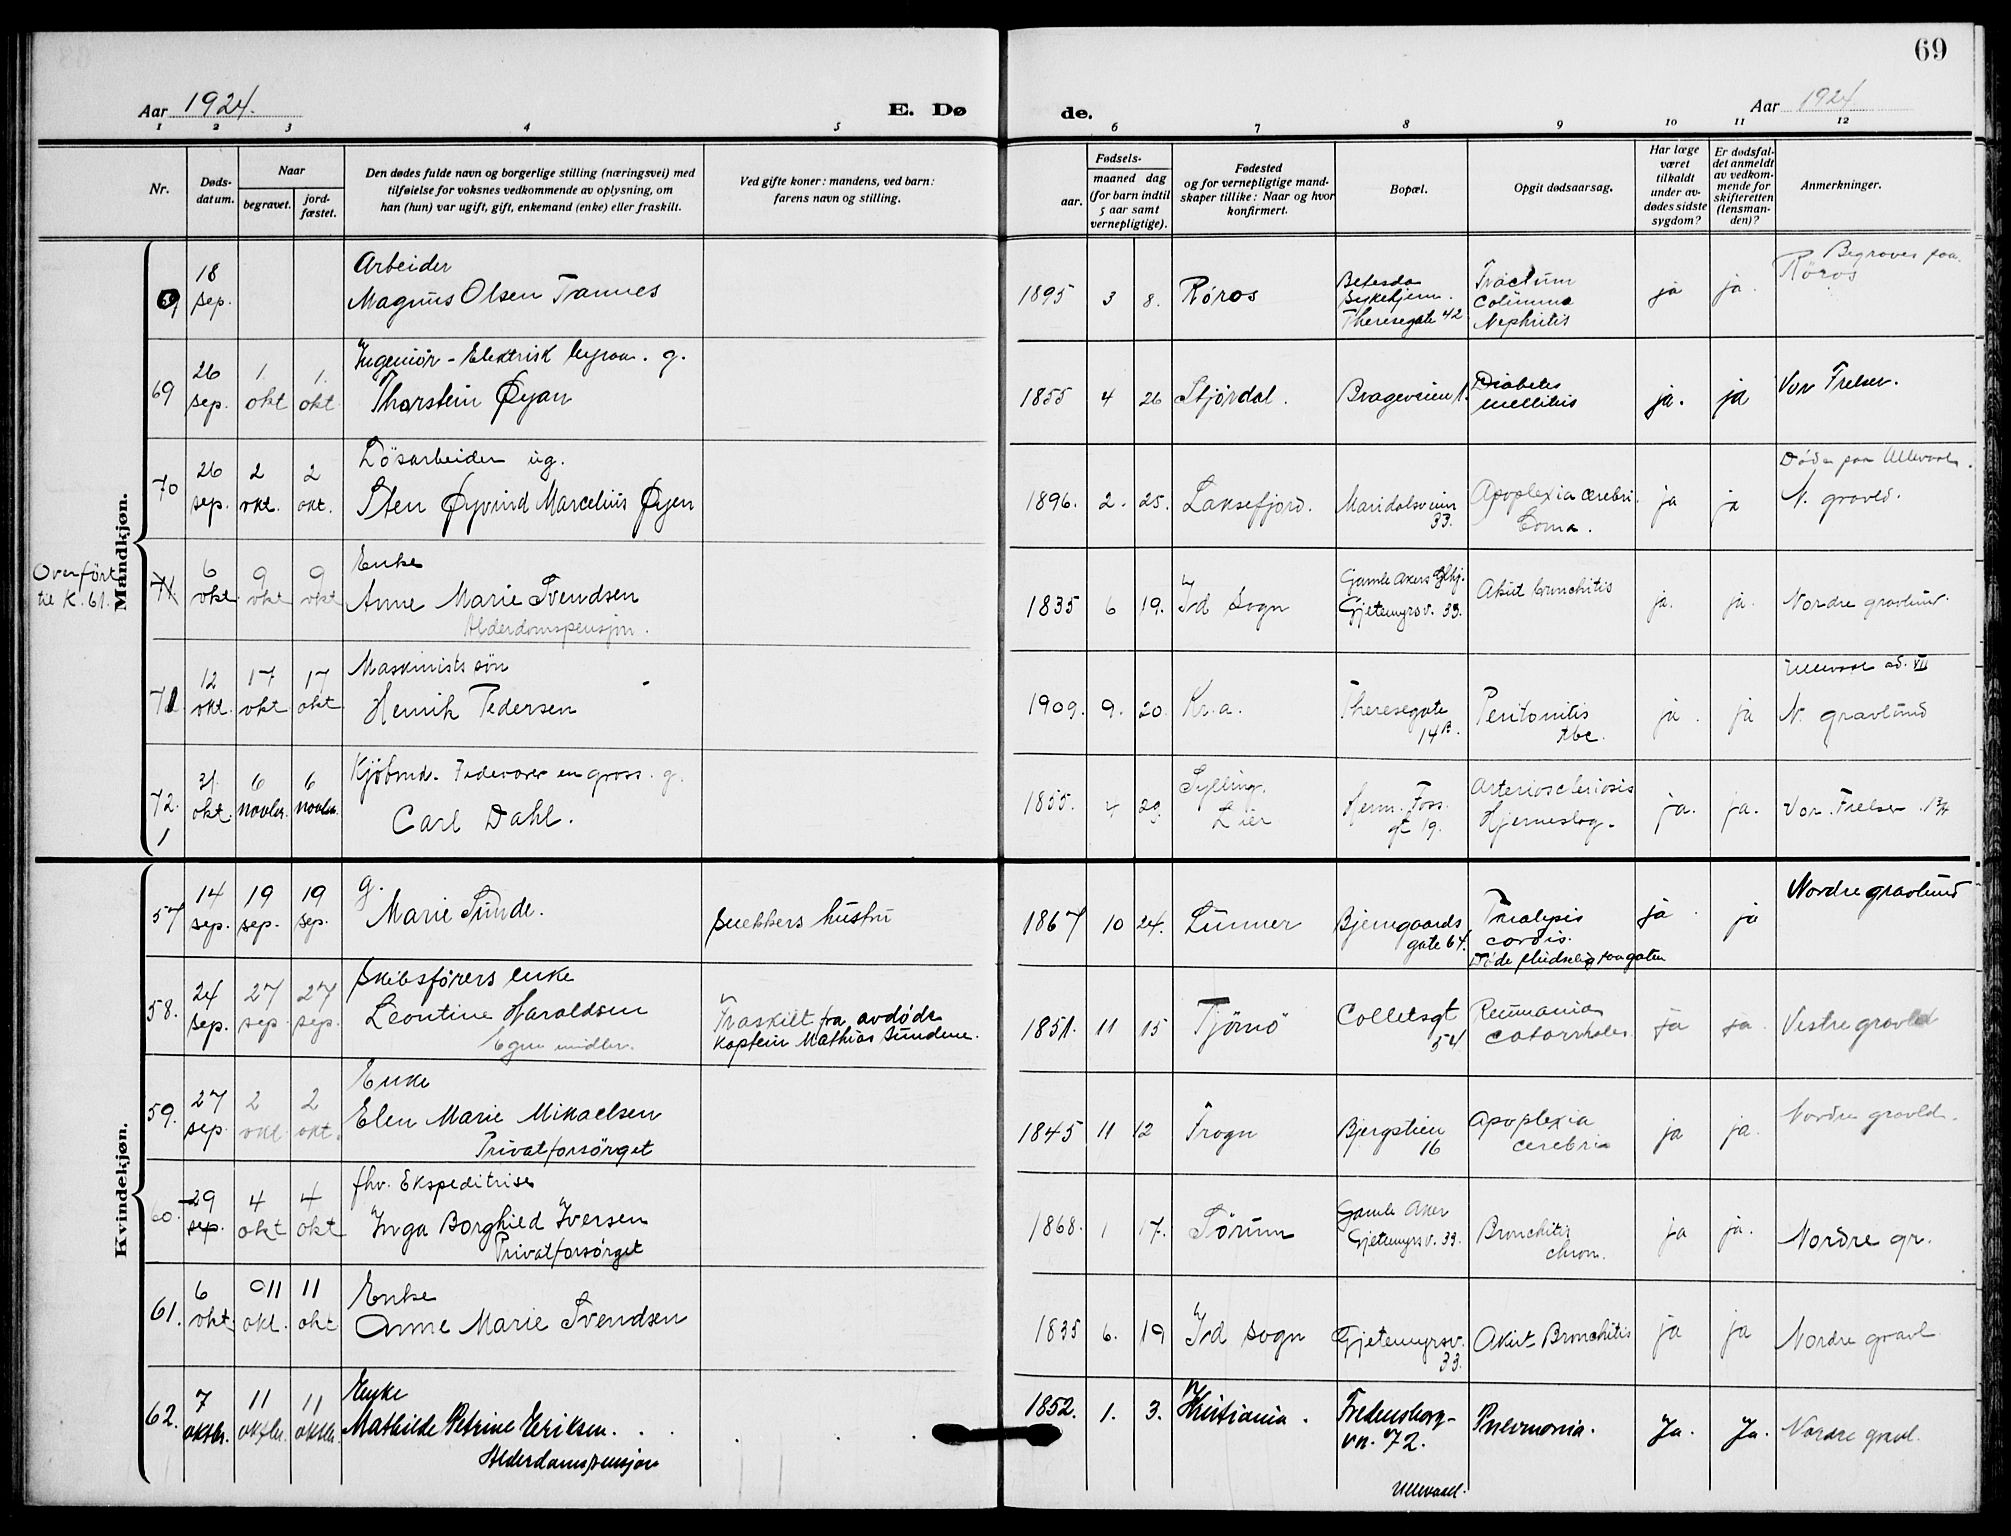 69
Aar 1924.
E. Dø de.
Aar 1924
1 2 3 4 5 6 7 8 9 10 11 12
Nr.
Døds-
datum.
Naar
begravet.
jord-
fæstet.
Den dødes fulde navn og borgerlige stilling (næringsvei) med
tilføielse for voksnes vedkommende av oplysning, om
han (hun) var ugift, gift, enkemand (enke) eller fraskilt.
Ved gifte koner: mandens, ved barn:
farens navn og stilling.
Fødsels-
aar.
maaned dag
(for barn indtil
5 aar samt
vernepligtige).
Fødested
og for vernepligtige mand-
skaper tillike: Naar og hvor
konfirmert.
Bopæl.
Opgit dødsaarsag.
Har læge
været
tilkaldt
under av-
dødes sidste
sygdom?
Er dødsfal-
det anmeldt
av vedkom-
mende for
skifteretten
(lensman-
den)?
Anmerkninger.
Mandkjøn.
69
18
sep.
Arbeider
Magnus Olsen Tamnes
1895 3 8. Røros
Betesda
Sykehjem.
Theresegate 42
Columna
Nephritis
ja ja.
Begraves paa
Røros
69
26
sep.
1
okt
1.
okt
Ingeniør - Elektrisk byraa. g.
Thorstein Øyan
1855 4 26 Stjørdal. Brageveien 1.
Diabetes
mellitus
ja. ja Vor Frelser.
70
26
sep.
2
okt.
2
okt.
Løsarbeider ug.
Sten Øyvind Marcelius Øyen
1896. 2. 25. Laksefjord.
Maridalsveien
33.
Apoplexia cerebri.
Coma.
ja ja
Døde paa Ullevaal.
N. gravld.
Overført
til K. 61.
71
6
okt.
9
okt
9
okt
Enke
Anne Marie Svendsen
Alderdomspensjon.
1835 6 19. Id sogn
Gamle Akers Glhj.
Gjetemyrsv. 33.
Akut bronchitis
ja. ja. Nordre gravlund.
71
12
okt.
17
okt
17
okt
Maskinists søn
Henrik Pedersen
1909. 9. 20 Kr.a.
Theresegate
14 B.
Peritonitis
tbc.
ja. ja
Ullevaal ad. VII
N. gravlund
72.
31.
okt.
6
novbr.
6
novbr.
Kjøbmd. Fedevarer en gross. g.
Carl Dahl.
1855. 4 29.
Sylling.
Lier
Herm. Foss
gt 19.
Arteriosclerosis
Hjerneslag.
ja. ja. Vor. Frelser.
Kvindekjøn.
57
14
sep.
19
sep.
19
sep.
g.
Marie Sunde.
snekkers hustru
1867 10 24. Lunner
Bjerregaards
gate 64.
Paralysis
cordis.
Døde pludselig paa gaten
ja. ja Nordre gravlund
58.
24
sep.
27
sep.
27
sep.
Skibsførers enke
Leontine Haraldsen
Egne midler.
Fraskilt fra avdøde
kaptein Mathias Sundene.
1851. 11 15 Tjømø
Colletsgt
54
Pneumonia
catarrhales
ja ja. Vestre gravld
59.
27
sep.
2
okt.
2
okt.
Enke
Elen Marie Mikaelsen
Privatforsørget
1845 11 12 Frogn
Bjergstien
16
Apoplexia
cerebri
ja ja. Nordre gravld.
60.
29
sep.
4
okt
4
okt
fhv. Ekspeditrise
Inga Borghild Iversen
Privatforsørget
1868. 1 17. Sørum
Gamle Aker
Gjetemyrsv. 33.
Bronchitis
chron.
ja ja. Nordre gr.
61.
6
okt.
11
okt.
11
okt
Enke
Anne Marie Svendsen
1835 6. 19 Id sogn
Gjetemyrsv.
33.
Akut Bronchitis
ja ja Nordre gravl
62.
7
oktbr.
11
oktbr.
11
oktbr.
Enke
Mathilde Petrine Eriksen.
Alderdomspensjon
1852. 1. 3. Kristiania.
Fredensborg-
vn. 72.
Ullevaal.
Pneumonia.
Ja. Ja. Nordre gravl.